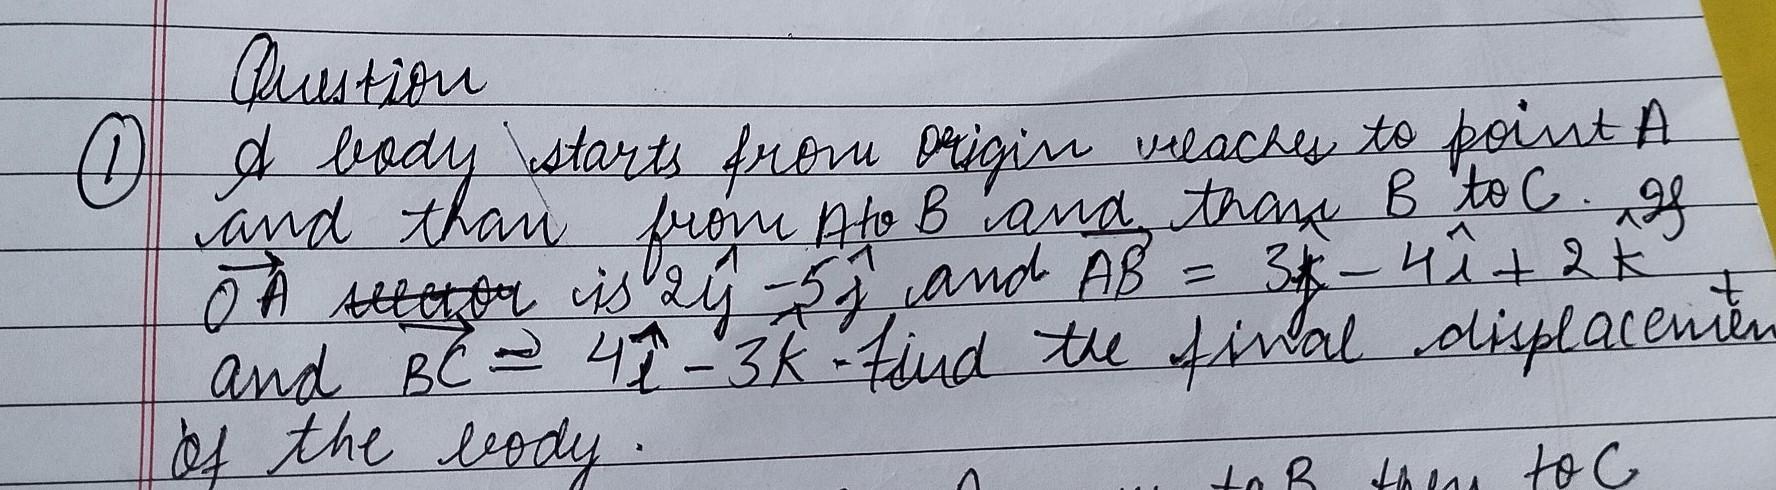 Question
① A body starts from origin reaches to point A
and than from A to B and than B to C. If
OA is 2ĵ - 5ĵ and AB = 3 - 4î + 2k
and BC = 4î - 3k. find the final displacement
of the body.
to B then to C